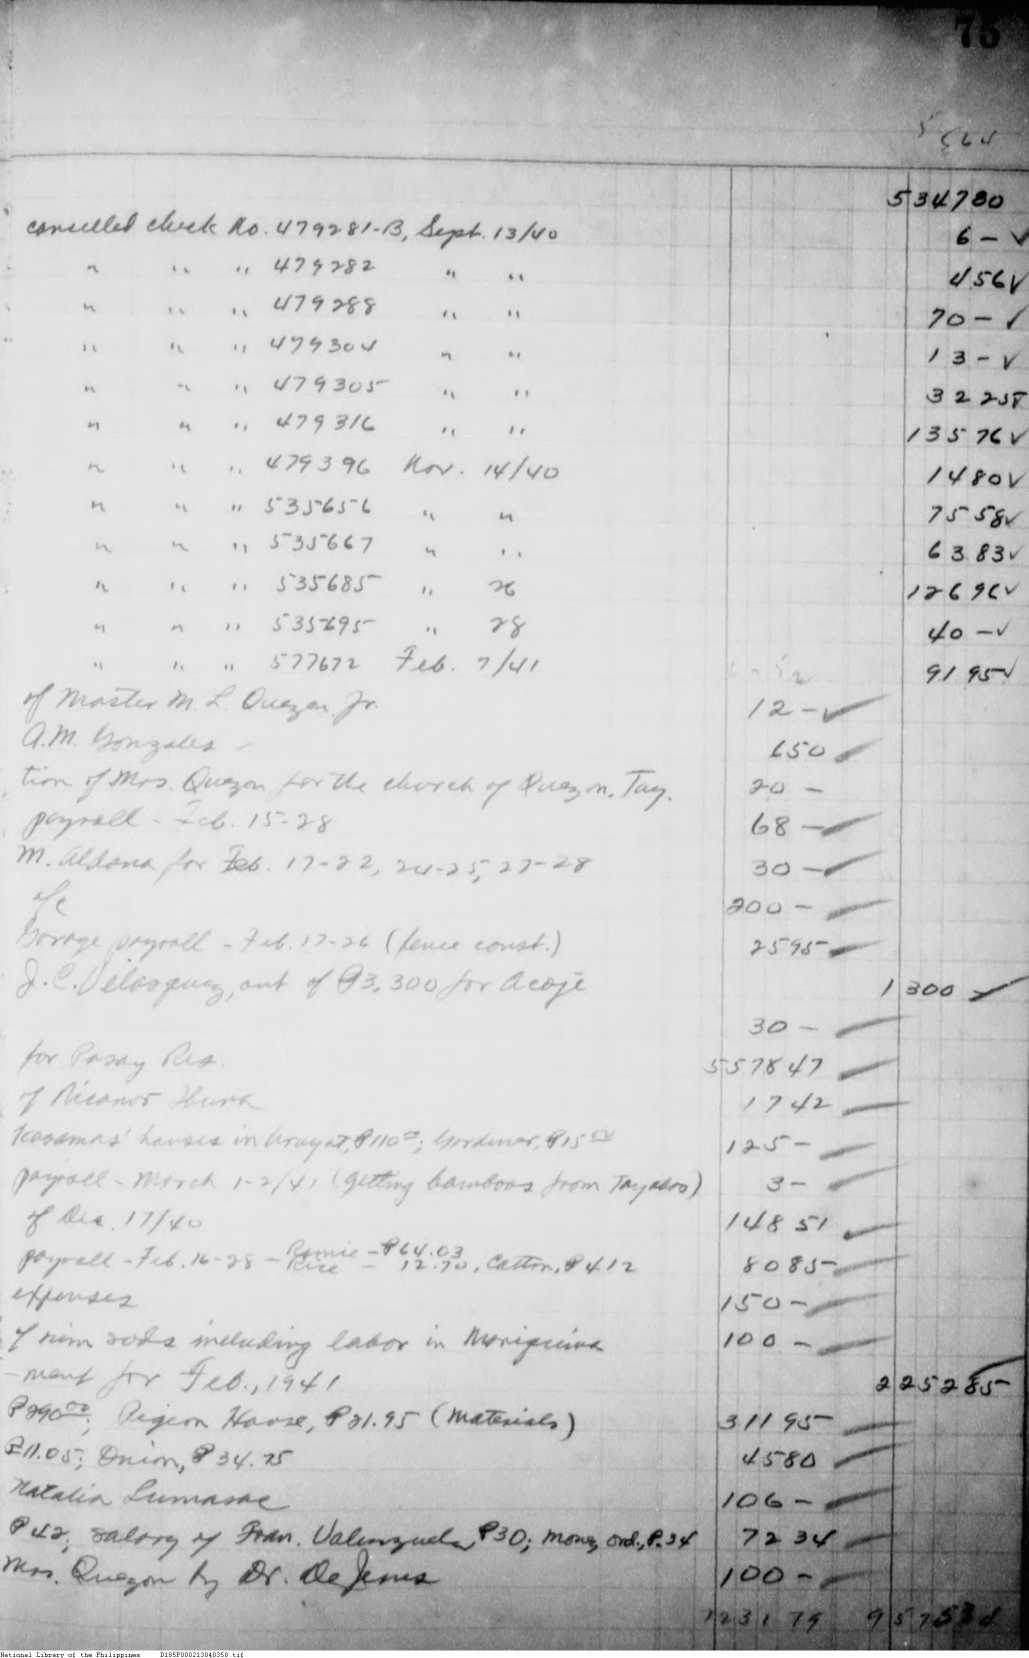 75
5 564
534780
cancelled check No. 479281-B, Sept. 13/40 6 - ✓
" " " 479282 " " 4 56 ✓
" " " 479288 " " 70 - ✓
" " " 479304 " " 13 - ✓
" " " 479305 " " 32 25 ✓
" " " 479316 " " 135 76 ✓
" " " 479396 Nov. 14/40 14 80 ✓
" " " 535656 " " 75 58 ✓
" " " 535667 " " 63 83 ✓
" " " 535685 " 26 126 96 ✓
" " " 535695 " 28 40 - ✓
" " " 577672 Feb. 7/41 91 95 ✓
of Master M. L. Quezon Jr. 12 - ✓
A.M. Gonzales 6 50
tion of Mrs. Quezon for the church of Quezon, Tay. 20 -
payroll - Feb. 15-28 68 -
M. Aldana for Feb. 17-22, 24-25, 27-28 30 -
a/c 200 -
Garage payroll - Feb. 17-26 (fence const.) 25 95
J. C. Velasquez, out of ₱3,300 for Acoje 1 300 ✓
30 -
for Pasay Res. 557 8 47
of Nicanor 17 42
Kasamas' houses in Arayat, ₱110.00; Gardener, ₱15.00 125 -
payroll - March 1-2/41 (getting bamboos from Tayabas) 3 -
of Dec. 17/40 148 51
payroll - Feb. 16-28 - Ramie - ₱64.03
Rice - 12.70, Cotton, ₱4.12 80 85
expenses 150 -
of rods including labor in Mariquina 100 -
-ment for Feb., 1941 2 252 85
₱290.00; Pigeon House, ₱21.95 (Materials) 311 95
₱11.05; Onion, ₱34.75 45 80
Natalia Lumasac 106 -
₱42, salary of Fran. Valenzuela, ₱30; Money ord., ₱.34 72 34
Mrs. Quezon by Dr. De Jesus 100 -
7231 79 9 575 34
National Library of the Philippines D185P000213040358.tif